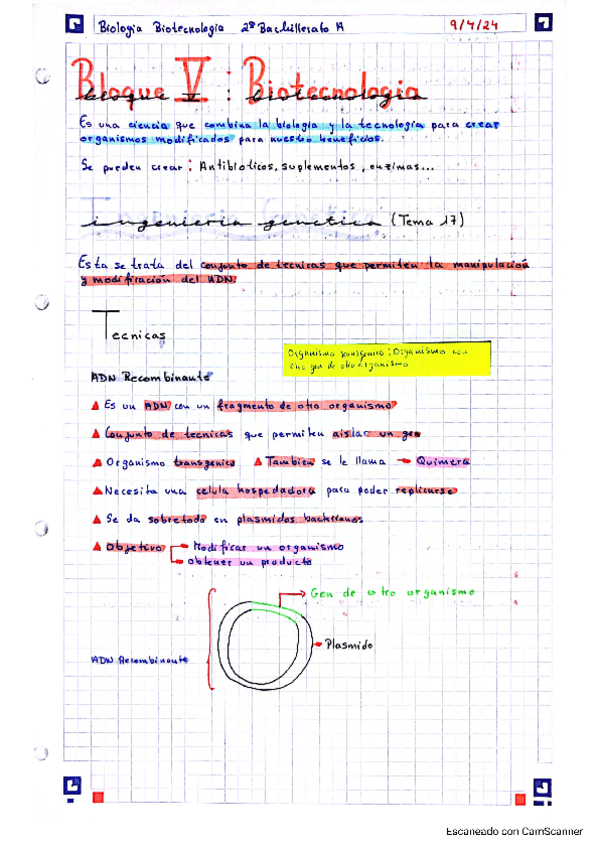 Biologia Biotecnologia 2º Bachillerato A 9/4/24
Bloque V : Biotecnologia
Es una ciencia que combina la biologia y la tecnologia para crear
organismos modificados para nuestro beneficios.
Se pueden crear : Antibioticos, suplementos, enzimas...
ingenieria genetica (Tema 17)
Esta se trata del conjunto de tecnicas que permiten la manipulación
y modificación del ADN.
Tecnicas
Organismo transgenico : Organismo con
gen de otro organismo
ADN Recombinante
Es un ADN con un fragmento de otro organismo
Conjunto de tecnicas que permiten aislar un gen
Organismo transgenico Tambien se le llama → Quimera
Necesita una celula hospedadora para poder replicarse
Se da sobretodo en plasmidos bacterianos
Objetivo → Modificar un organismo
→ obtener un producto
Gen de otro organismo
Plasmido
ADN Recombinante
Escaneado con CamScanner